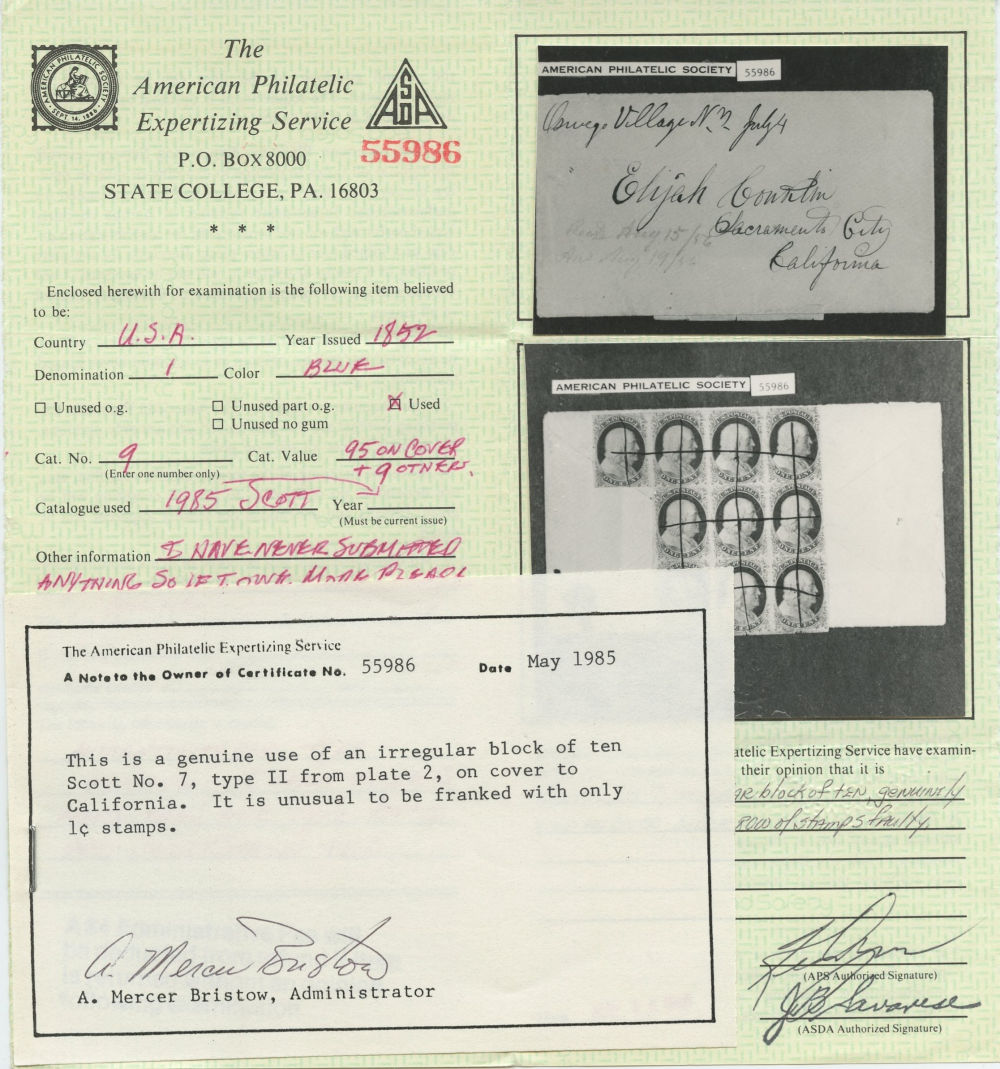 The
American Philatelic
Expertizing Service
AMERICAN PHILATELIC SOCIETY · SEPT 14, 1886 ·
ASDA
55986
P.O. BOX 8000
STATE COLLEGE, PA. 16803
* * *
Enclosed herewith for examination is the following item believed
to be:
Country U.S.A. Year Issued 1852
Denomination 1 Color BLUE
☐ Unused o.g. ☐ Unused part o.g. ☒ Used
☐ Unused no gum
Cat. No. 9 Cat. Value 95 ON COVER
(Enter one number only) + 9 OTHERS.
Catalogue used 1985 SCOTT Year
(Must be current issue)
Other information I HAVE NEVER SUBMITTED
ANYTHING SO IF I OWE MORE PLEASE
AMERICAN PHILATELIC SOCIETY 55986
Oswego Village N.Y. July 4
Elijah Conklin
Sacramento City
California
Aug 15/56
AMERICAN PHILATELIC SOCIETY 55986
U.S. POSTAGE
ONE CENT
The American Philatelic Expertizing Service
A Note to the Owner of Certificate No. 55986 Date May 1985
This is a genuine use of an irregular block of ten
Scott No. 7, type II from plate 2, on cover to
California. It is unusual to be franked with only
1¢ stamps.
A. Mercer Bristow
A. Mercer Bristow, Administrator
atelic Expertizing Service have examin-
their opinion that it is
block of ten, genuinely
row of stamps faulty.
(APS Authorized Signature)
(ASDA Authorized Signature)